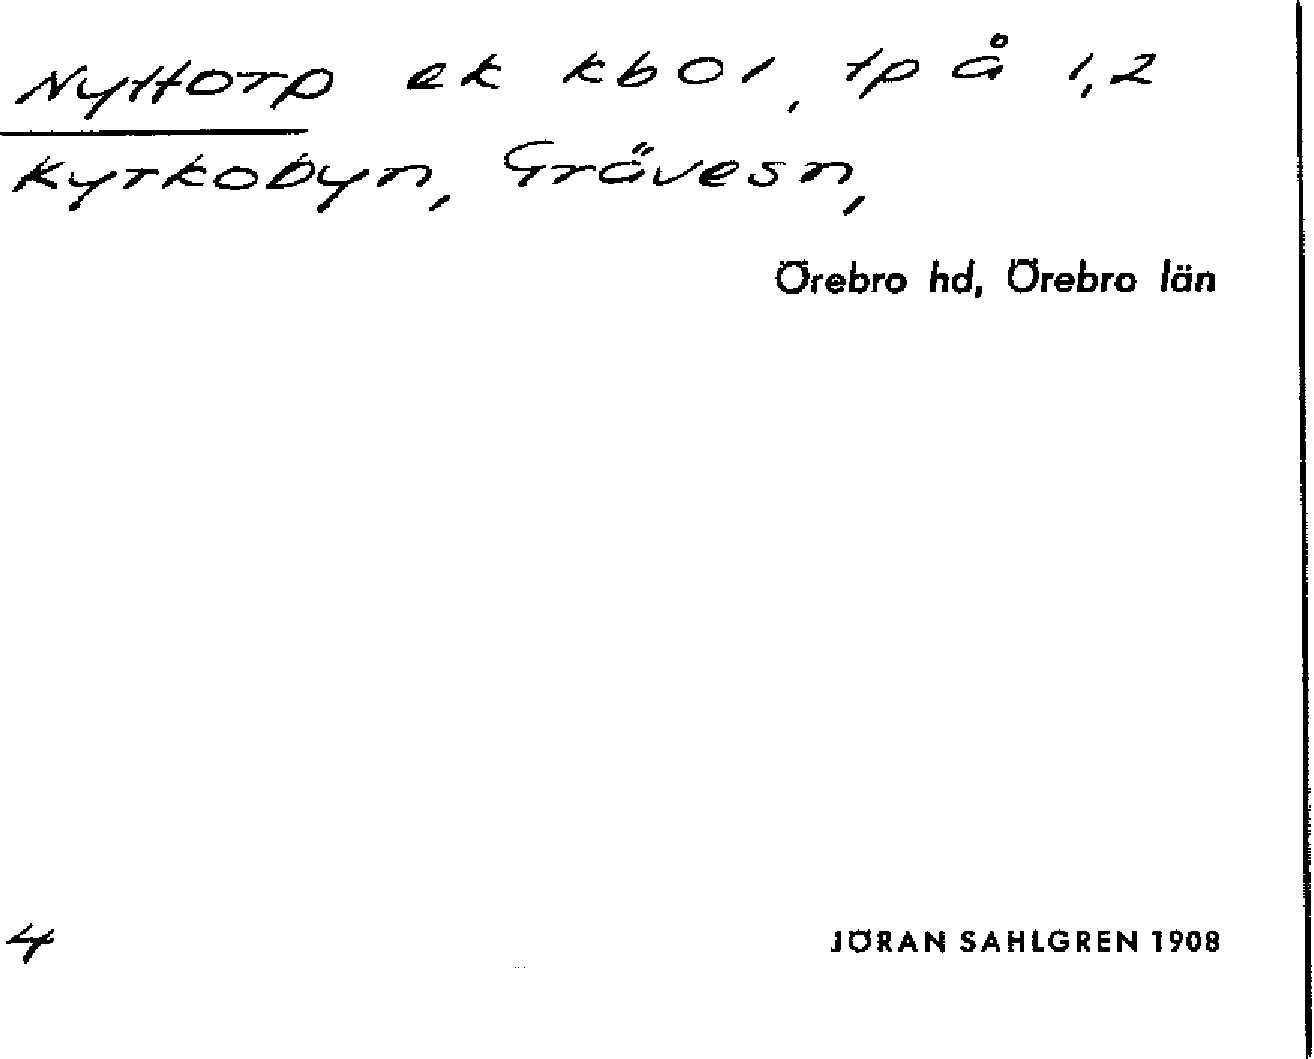 Nyttorp ek kb01, tp å 1,2
Kyrkobyn, Grävesn,
Örebro hd, Örebro län
4
JÖRAN SAHLGREN 1908